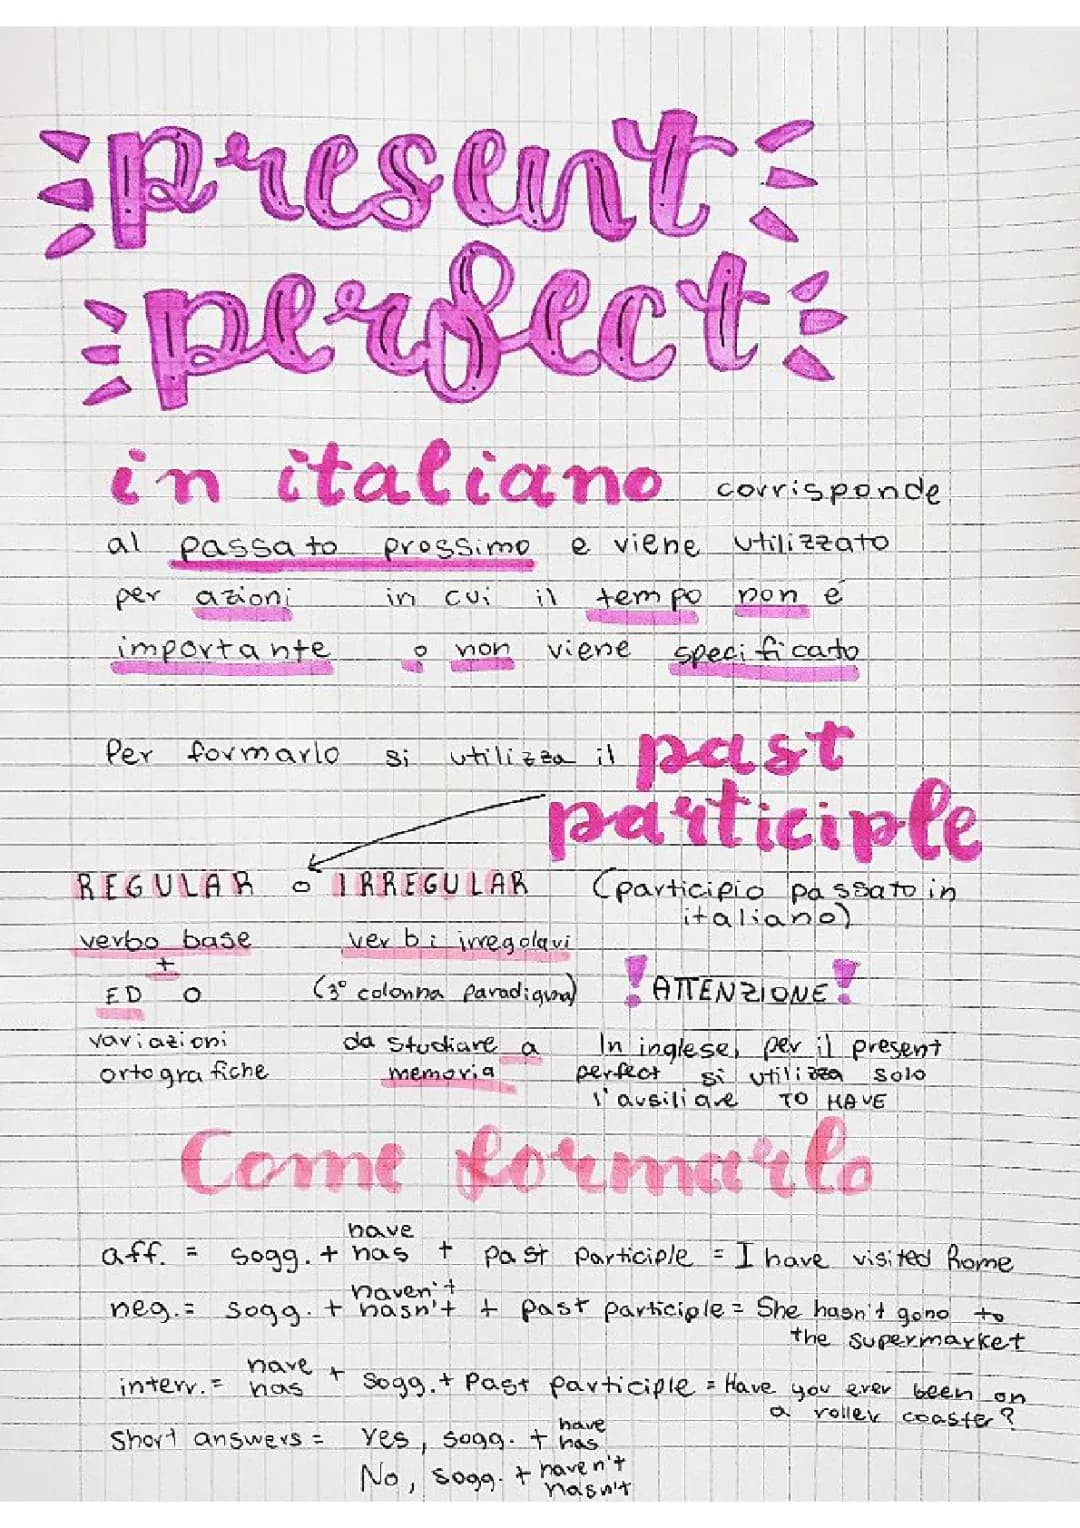 present
perfect
in italiano corrisponde
al passato prossimo e viene utilizzato
per azioni in cui il tempo non é
importante o non viene specificato
Per formarlo si utilizza il past
participle
REGULAR o IRREGULAR (participio passato in
italiano)
verbo base
+
ED o
variazioni
ortografiche
verbi irregolari
(3° colonna paradigma)
da studiare a
memoria
! ATTENZIONE !
In inglese, per il present
perfect si utilizza solo
l'ausiliare TO HAVE
Come formarlo
have
aff. = sogg. + has + past participle = I have visited Rome
haven't
neg. = sogg. + hasn't + past participle = She hasn't gono to
the supermarket
have
interr. = has + sogg. + Past participle = Have you ever been on
a roller coaster?
have
Short answers = Yes, sogg. + has
No, sogg. + haven't
hasn't